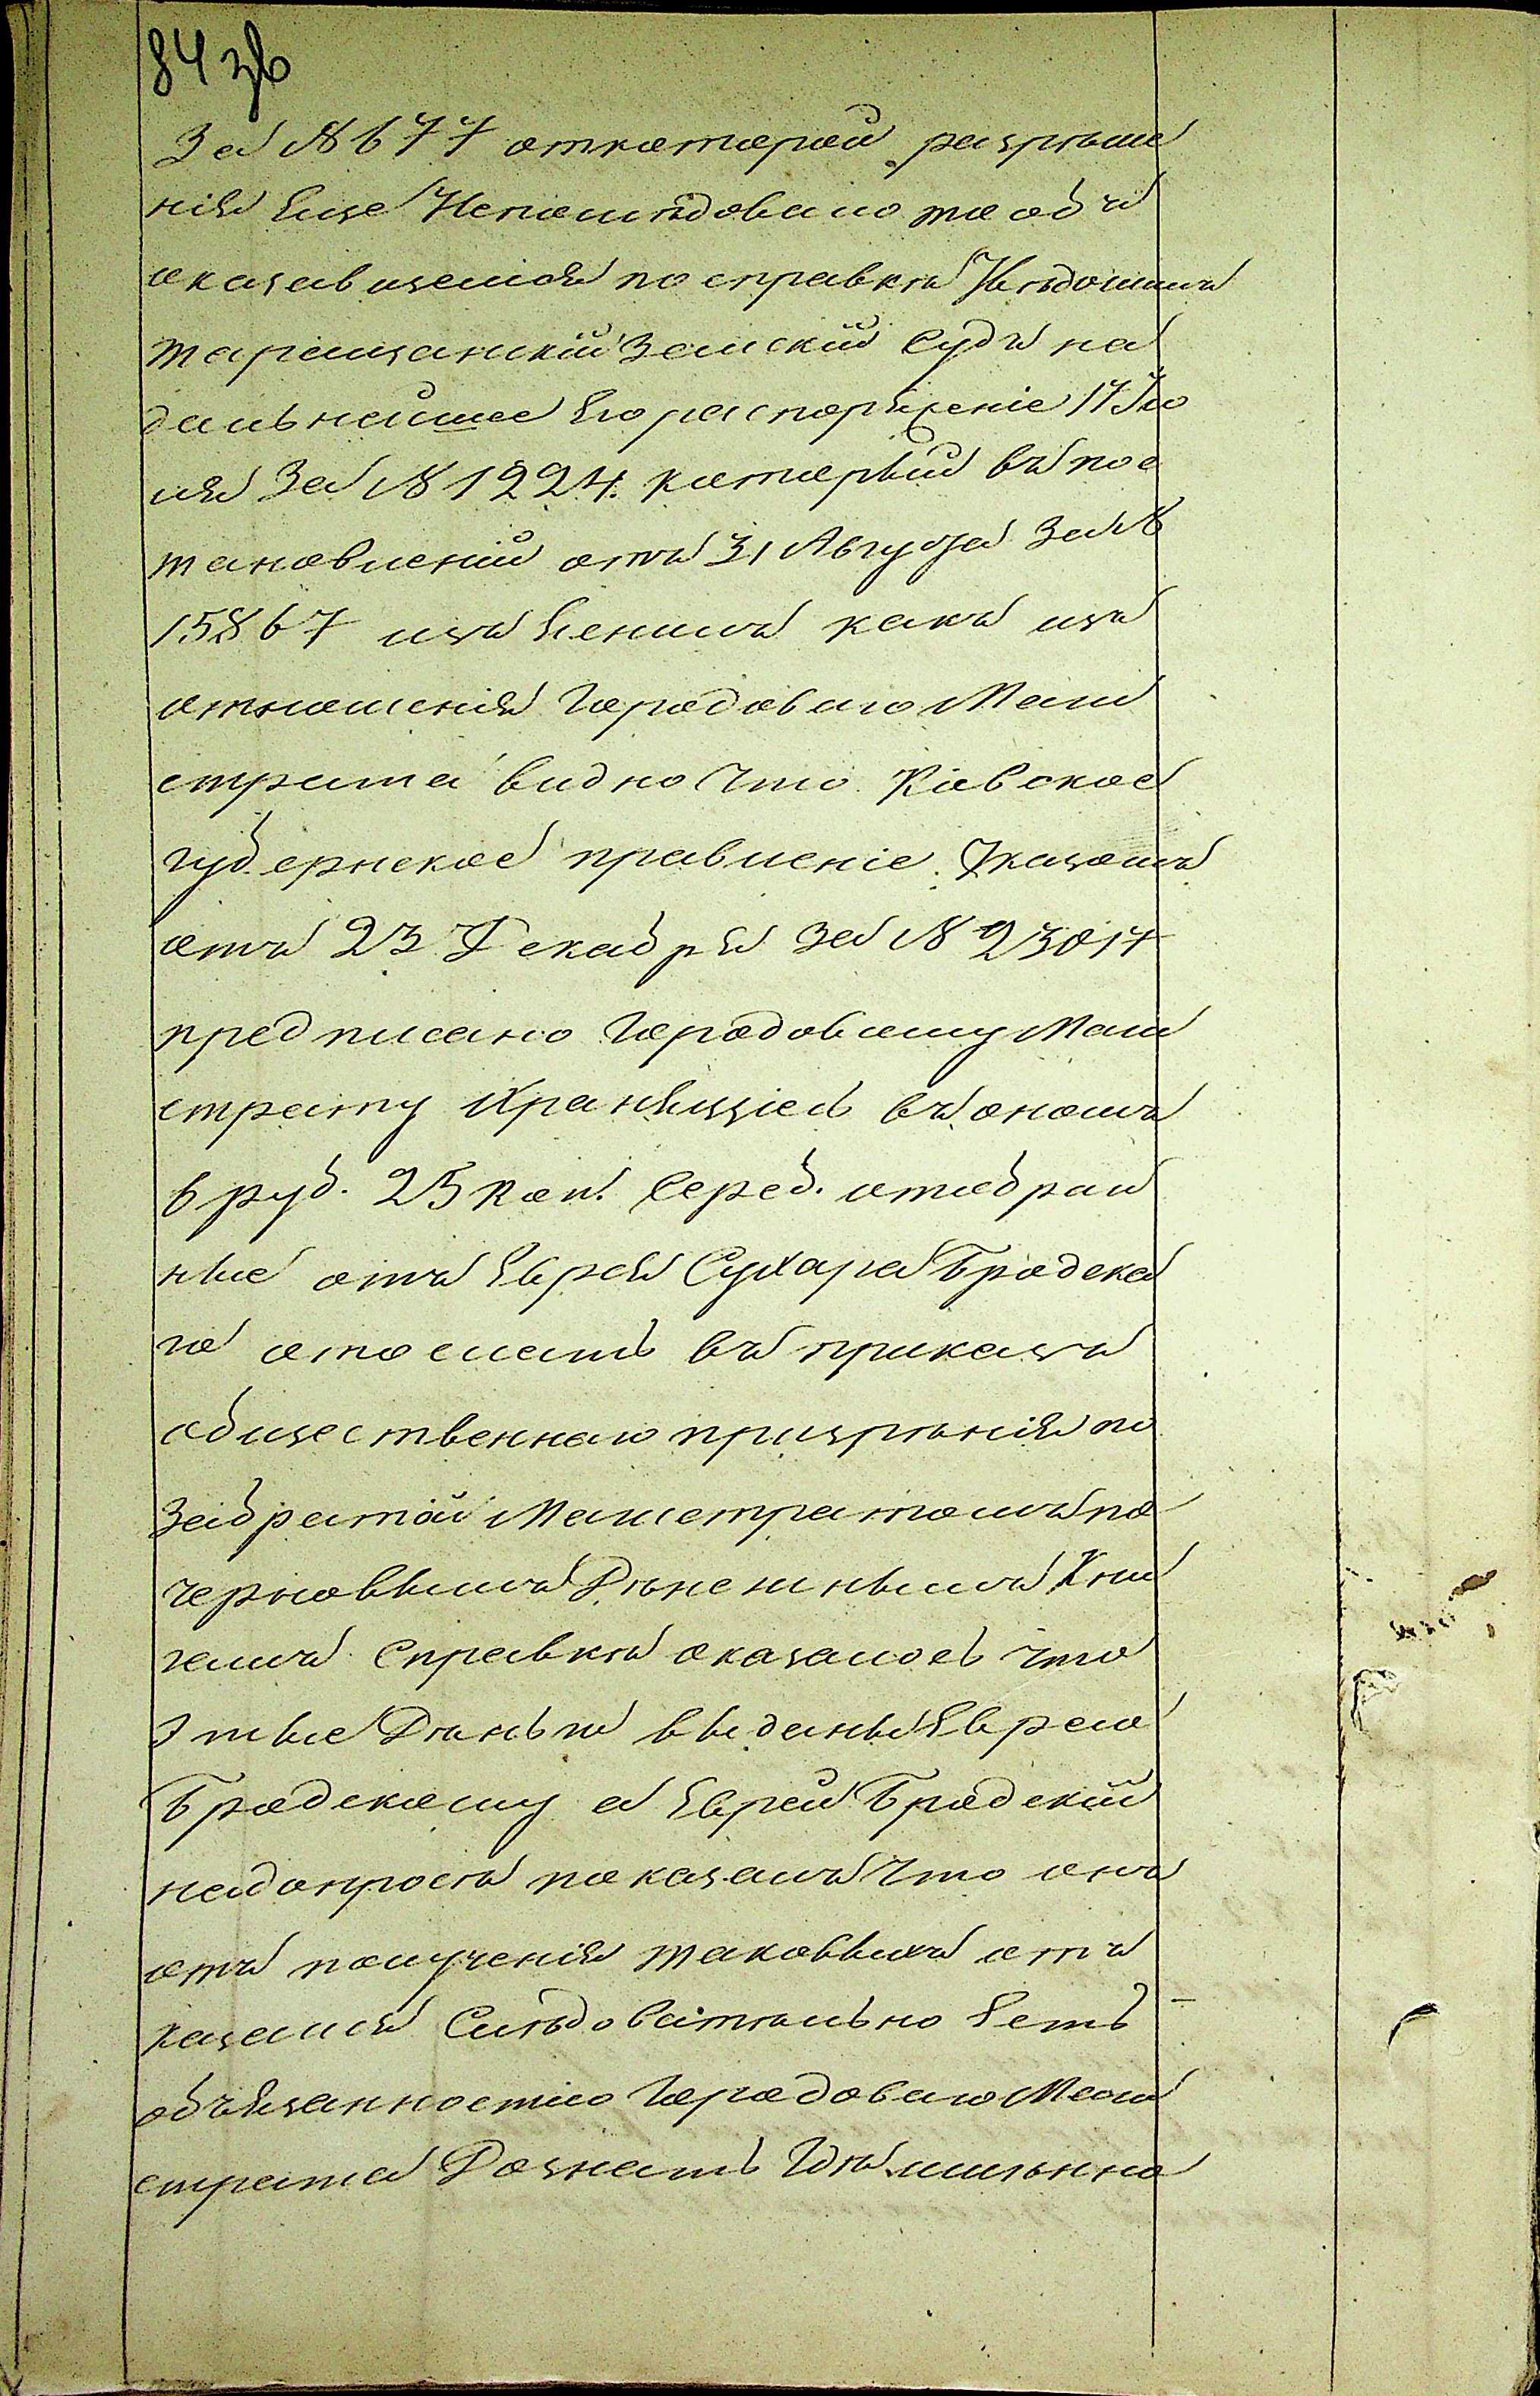 84 зв
За № 677 откоторой разрѣше
нія еще Непослѣдовало то объ
оказавшемся по справкѣ Увѣдомилъ
таращанскій Земскій Судъ на
дальнейшее Его распоряженіе 17 Ію
ля За № 1224. который въ пос
тановленіи отъ 31 Августа За №
15867 изъ Яснилъ какъ изъ
отношенія Городоваго Маги
страта видно что Кіевское
губернское правленіе Указомъ
отъ 23 Декабря За № 23017
предписано Городовому Маги
страту Хранящіесь въ ономъ
6 руб. 25 коп. Сереб. отобран
ные отъ Еврея Сухара Бродска
го отослать въ приказъ
общественнаго призрѣнія по
Забратой Магистратомъ по
черновымъ Дѣнежнымъ Кни
гамъ Справки оказалось что
Этые Дѣньги выданы Еврею
Бродскому а Еврей Бродскій
надопросѣ показалъ что онъ
отъ полученія таковыхъ отъ
казался Слѣдоватѣльно Есть
объязанностію Городоваго Маги
страта Дознать Гдѣ имѣнно